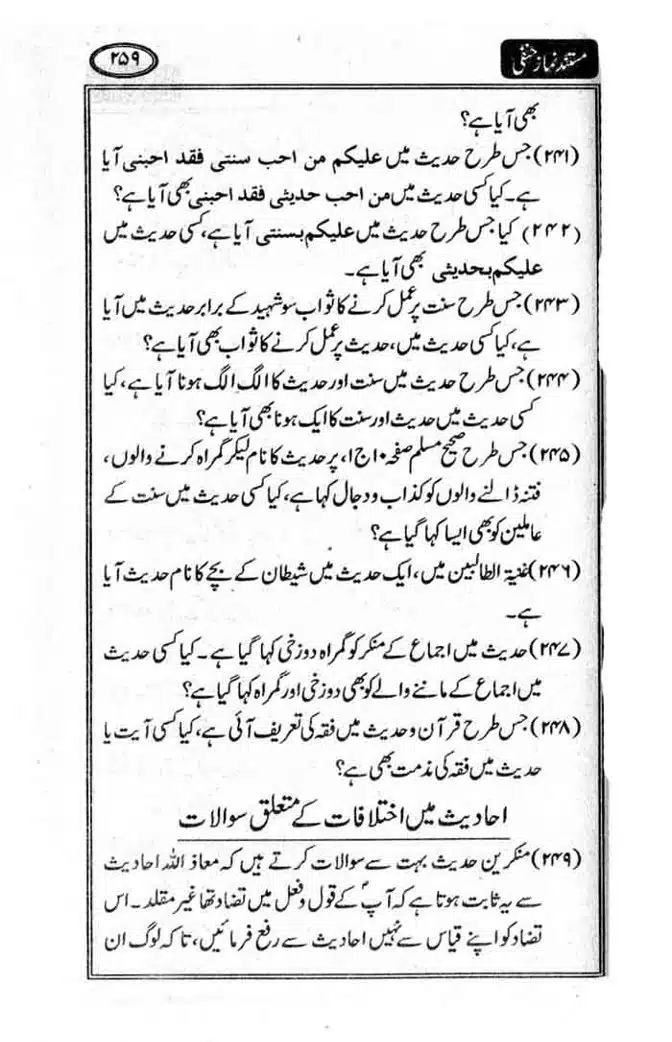 مستند نماز حنفی
۲۵۹
بھی آیا ہے؟
(۲۴۱) جس طرح حدیث میں علیکم من احب سنتی فقد احبنی آیا
ہے۔ کیا کسی حدیث میں من احب حدیثی فقد احبنی بھی آیا ہے؟
(۲۴۲) کیا جس طرح حدیث میں علیکم بسنتی آیا ہے، کسی حدیث میں
علیکم بحدیثی بھی آیا ہے۔
(۲۴۳) جس طرح سنت پر عمل کرنے کا ثواب سو شہید کے برابر حدیث میں آیا
ہے، کیا کسی حدیث میں، حدیث پر عمل کرنے کا ثواب بھی آیا ہے؟
(۲۴۴) جس طرح حدیث میں سنت اور حدیث کا الگ الگ ہونا آیا ہے، کیا
کسی حدیث میں حدیث اور سنت کا ایک ہونا بھی آیا ہے؟
(۲۴۵) جس طرح صحیح مسلم صفحہ ۱۰ ج ۱، پر حدیث کا نام لیکر گمراہ کرنے والوں،
فتنہ ڈالنے والوں کو کذاب و دجال کہا ہے، کیا کسی حدیث میں سنت کے
عاملین کو بھی ایسا کہا گیا ہے؟
(۲۴۶) غنیۃ الطالبین میں، ایک حدیث میں شیطان کے بچے کا نام حدیث آیا
ہے۔
(۲۴۷) حدیث میں اجماع کے منکر کو گمراہ دوزخی کہا گیا ہے۔ کیا کسی حدیث
میں اجماع کے ماننے والے کو بھی دوزخی اور گمراہ کہا گیا ہے؟
(۲۴۸) جس طرح قرآن و حدیث میں فقہ کی تعریف آئی ہے، کیا کسی آیت یا
حدیث میں فقہ کی مذمت بھی ہے؟
احادیث میں اختلافات کے متعلق سوالات
(۲۴۹) منکرین حدیث بہت سے سوالات کرتے ہیں کہ معاذ اللہ احادیث
سے یہ ثابت ہوتا ہے کہ آپؐ کے قول و فعل میں تضاد تھا غیر مقلد۔ اس
تضاد کو اپنے قیاس سے نہیں احادیث سے رفع فرمائیں، تاکہ لوگ ان